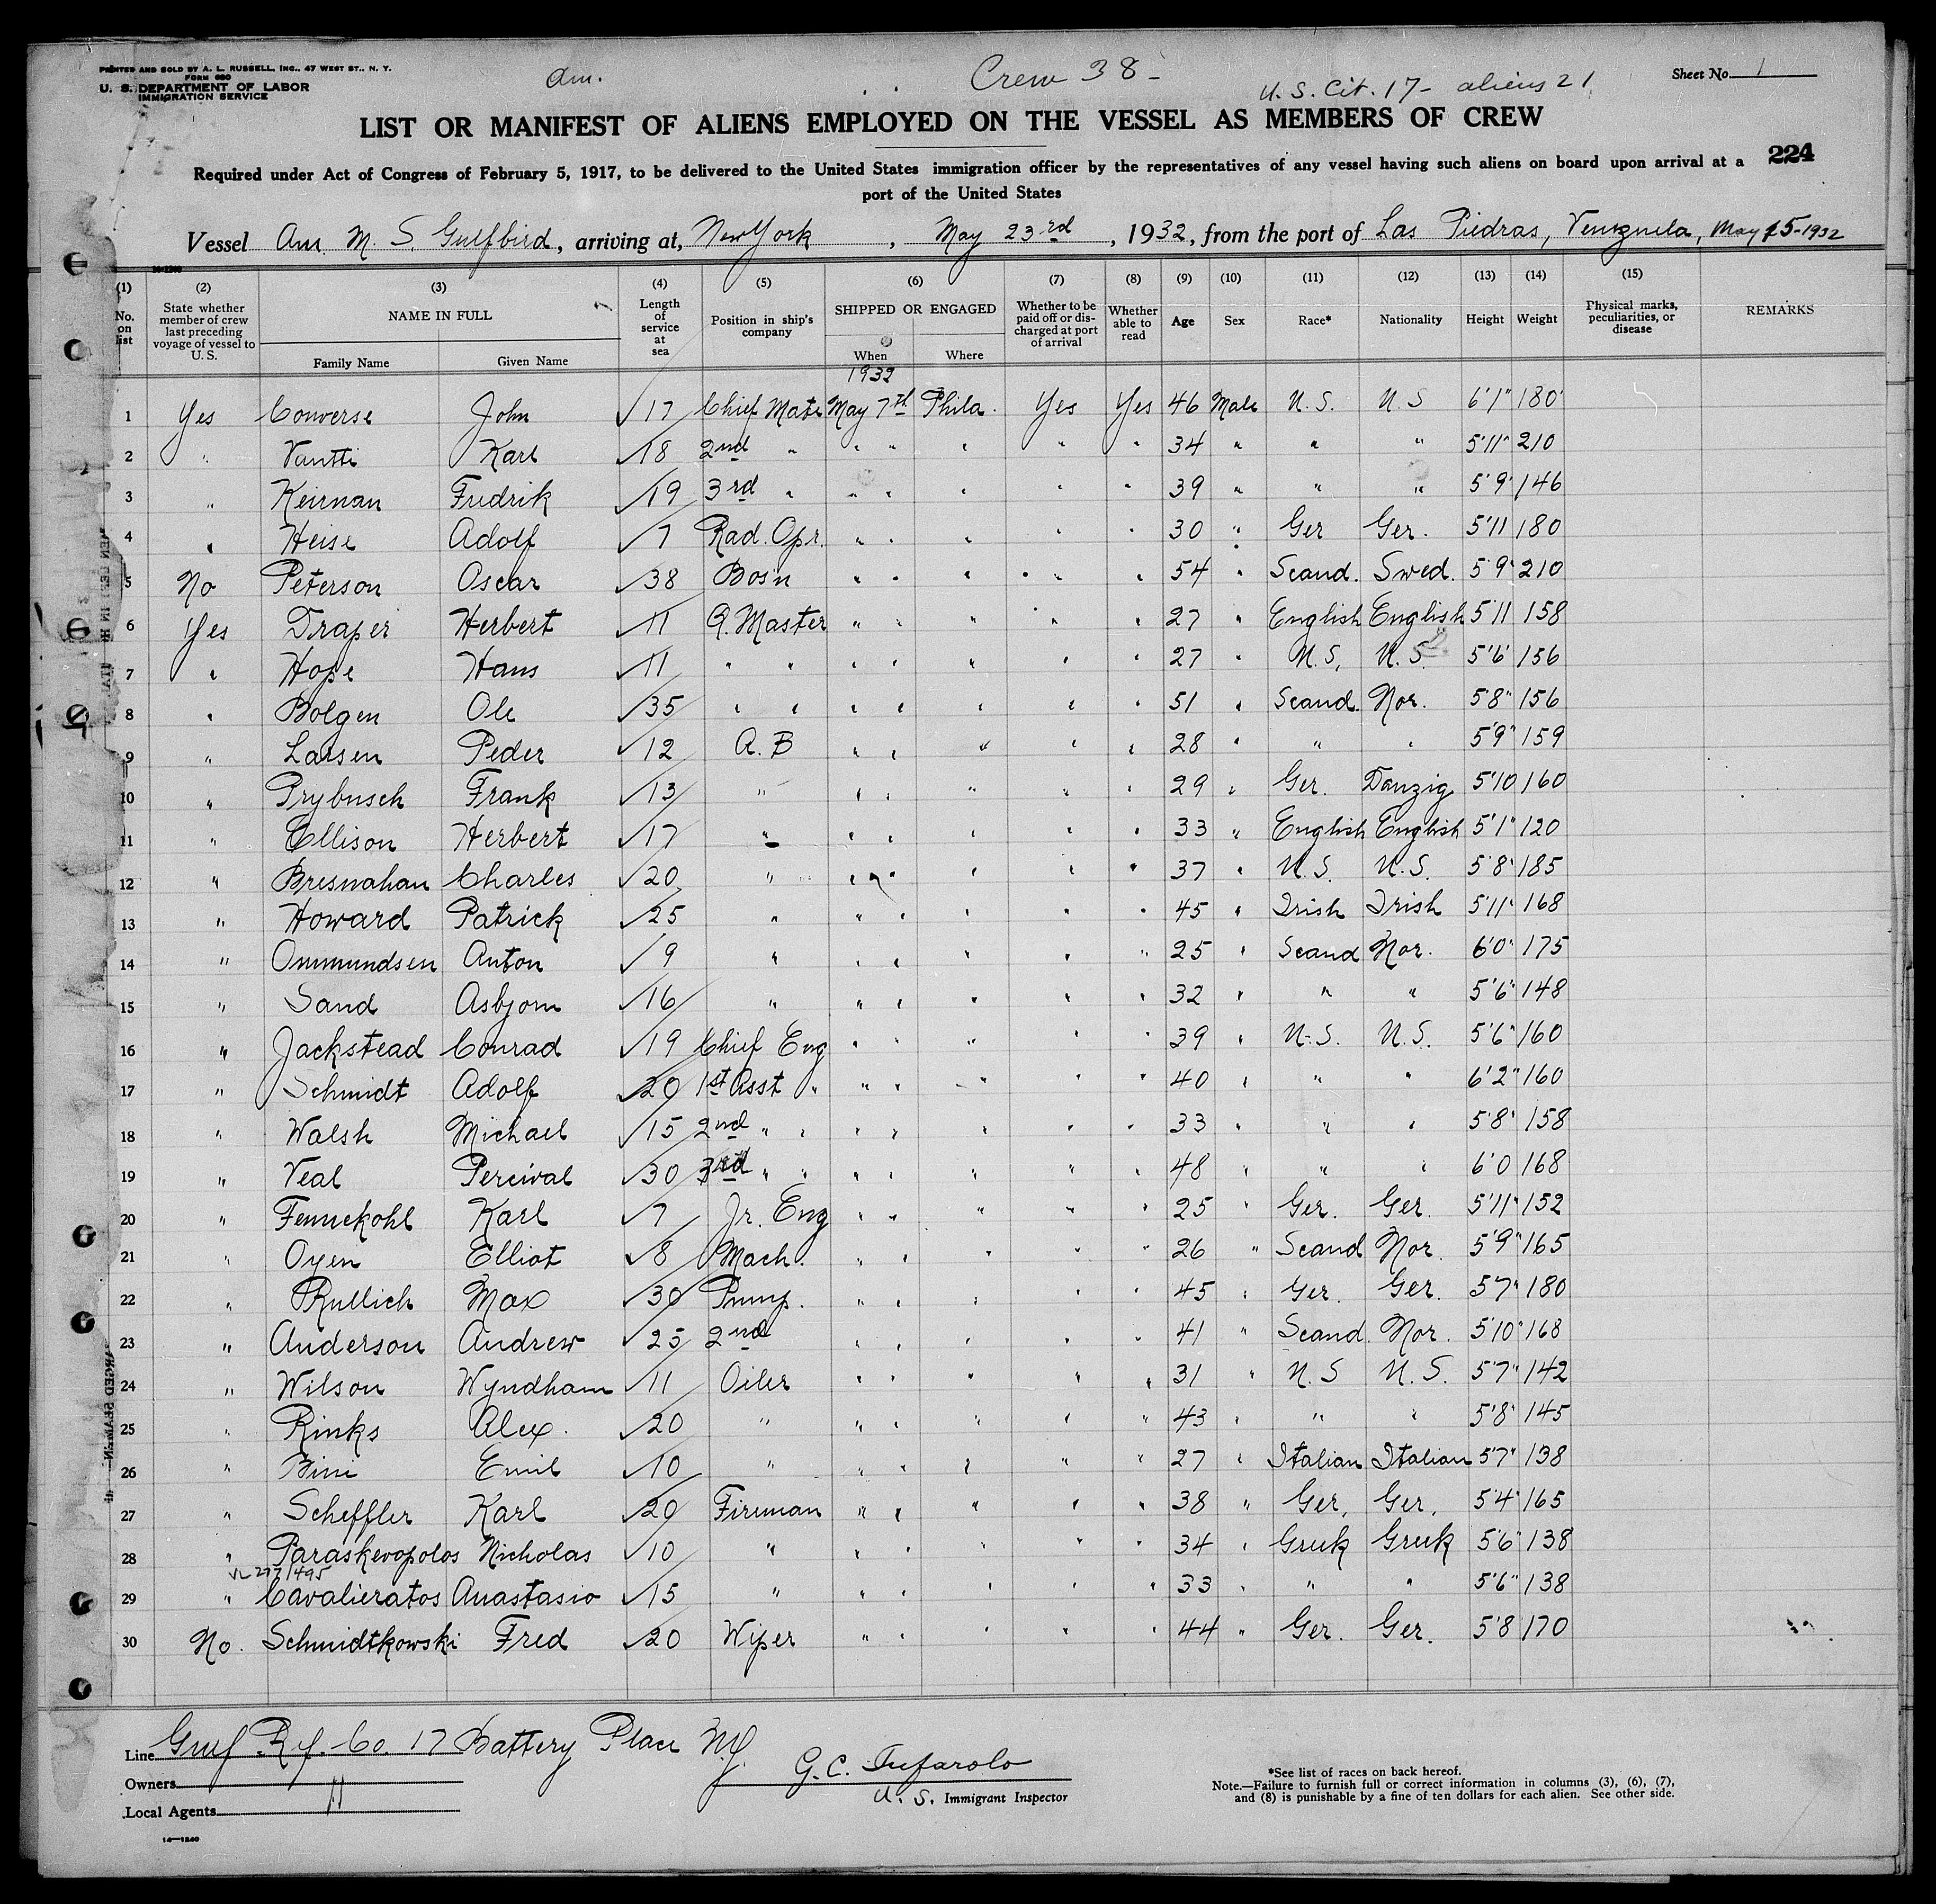 PRINTED AND SOLD BY A. L. RUSSELL, INC., 47 WEST ST., N. Y.
FORM 680
U. S. DEPARTMENT OF LABOR
IMMIGRATION SERVICE
Am.
Crew 38-
U.S. Cit. 17- aliens 21
Sheet No. 1
LIST OR MANIFEST OF ALIENS EMPLOYED ON THE VESSEL AS MEMBERS OF CREW
224
Required under Act of Congress of February 5, 1917, to be delivered to the United States immigration officer by the representatives of any vessel having such aliens on board upon arrival at a
port of the United States
Vessel Am. M. S. Gulfbird, arriving at, New York, May 23rd, 1932, from the port of Las Piedras, Venezuela, May 15-1932
(1) No. on list (2) State whether member of crew last preceding voyage of vessel to U. S. (3) NAME IN FULL Family Name Given Name (4) Length of service at sea (5) Position in ship's company (6) SHIPPED OR ENGAGED When Where (7) Whether to be paid off or discharged at port of arrival (8) Whether able to read (9) Age (10) Sex (11) Race* (12) Nationality (13) Height (14) Weight (15) Physical marks, peculiarities, or disease REMARKS
1932
1 Yes Converse John √ 17 Chief Mate May 7th Phila. Yes Yes 46 Male U.S. U.S 6'1" 180
2 " Vantti Karl √ 18 2nd " " " " " " 34 " " " 5'11" 210
3 " Keirnan Fredrik √ 19 3rd " " " " " " 39 " " " 5'9" 146
4 " Heise Adolf √ 7 Rad. Opr. " " " " " 30 " Ger Ger. 5'11 180
5 No Peterson Oscar √ 38 Bos'n " " " " " 54 " Scand. Swed. 5'9" 210
6 Yes Draper Herbert √ 11 Q. Master " " " " " 27 " English English 5'11 158
7 " Hope Hans √ 11 " " " " " " " 27 " U.S. U.S. 5'6" 156
8 " Bolgen Ole √ 35 " " " " " " " 51 " Scand. Nor. 5'8" 156
9 " Larsen Peder √ 12 A. B " " " " " 28 " " " 5'9" 159
10 " Prybusch Frank √ 13 " " " " " " 29 " Ger. Danzig 5'10 160
11 " Ellison Herbert √ 17 " " " " " " 33 " English English 5'1" 120
12 " Bresnahan Charles √ 20 " " " " " " 37 " U.S. U.S. 5'8" 185
13 " Howard Patrick √ 25 " " " " " " 45 " Irish Irish 5'11" 168
14 " Ommundsen Anton √ 9 " " " " " " 25 " Scand Nor. 6'0" 175
15 " Sand Asbjorn √ 16 " " " " " " 32 " " " 5'6" 148
16 " Jackstead Conrad √ 19 Chief Eng " " " " " 39 " U.S. U.S. 5'6" 160
17 " Schmidt Adolf √ 20 1st Asst " " " " " " 40 " " " 6'2" 160
18 " Walsh Michael √ 15 2nd " " " " " " " 33 " " " 5'8" 158
19 " Veal Percival √ 30 3rd " " " " " " " 48 " " " 6'0 168
20 " Fennekohl Karl √ 7 Jr. Eng " " " " " 25 " Ger. Ger. 5'11" 152
21 " Oyen Elliot √ 8 Mach. " " " " " 26 " Scand Nor. 5'9" 165
22 " Rullich Max √ 30 Pump. " " " " " 45 " Ger. Ger. 5'7" 180
23 " Anderson Andrew √ 25 2nd " " " " " 41 " Scand. Nor. 5'10" 168
24 " Wilson Wyndham √ 11 Oiler " " " " " 31 " U.S U.S. 5'7" 142
25 " Rinks Alex. √ 20 " " " " " " 43 " " " 5'8" 145
26 " Bini Emil √ 10 " " " " " " 27 " Italian Italian 5'7" 138
27 " Scheffler Karl √ 20 Fireman " " " " " 38 " Ger. Ger. 5'4" 165
28 " Paraskevopolos Nicholas √ 10 " " " " " " 34 " Greek Greek 5'6" 138
29 " Cavalieratos Anastasio √ 15 " " " " " " 33 " " " 5'6" 138
30 No. Schmidtkowski Fred √ 20 Wiper " " " " " 44 " Ger. Ger. 5'8 170
Line Gulf Ref. Co. 17 Battery Place N.Y.
Owners "
Local Agents
G. C. Tufarolo
U. S. Immigrant Inspector
*See list of races on back hereof.
Note.—Failure to furnish full or correct information in columns (3), (6), (7),
and (8) is punishable by a fine of ten dollars for each alien. See other side.
14—1240